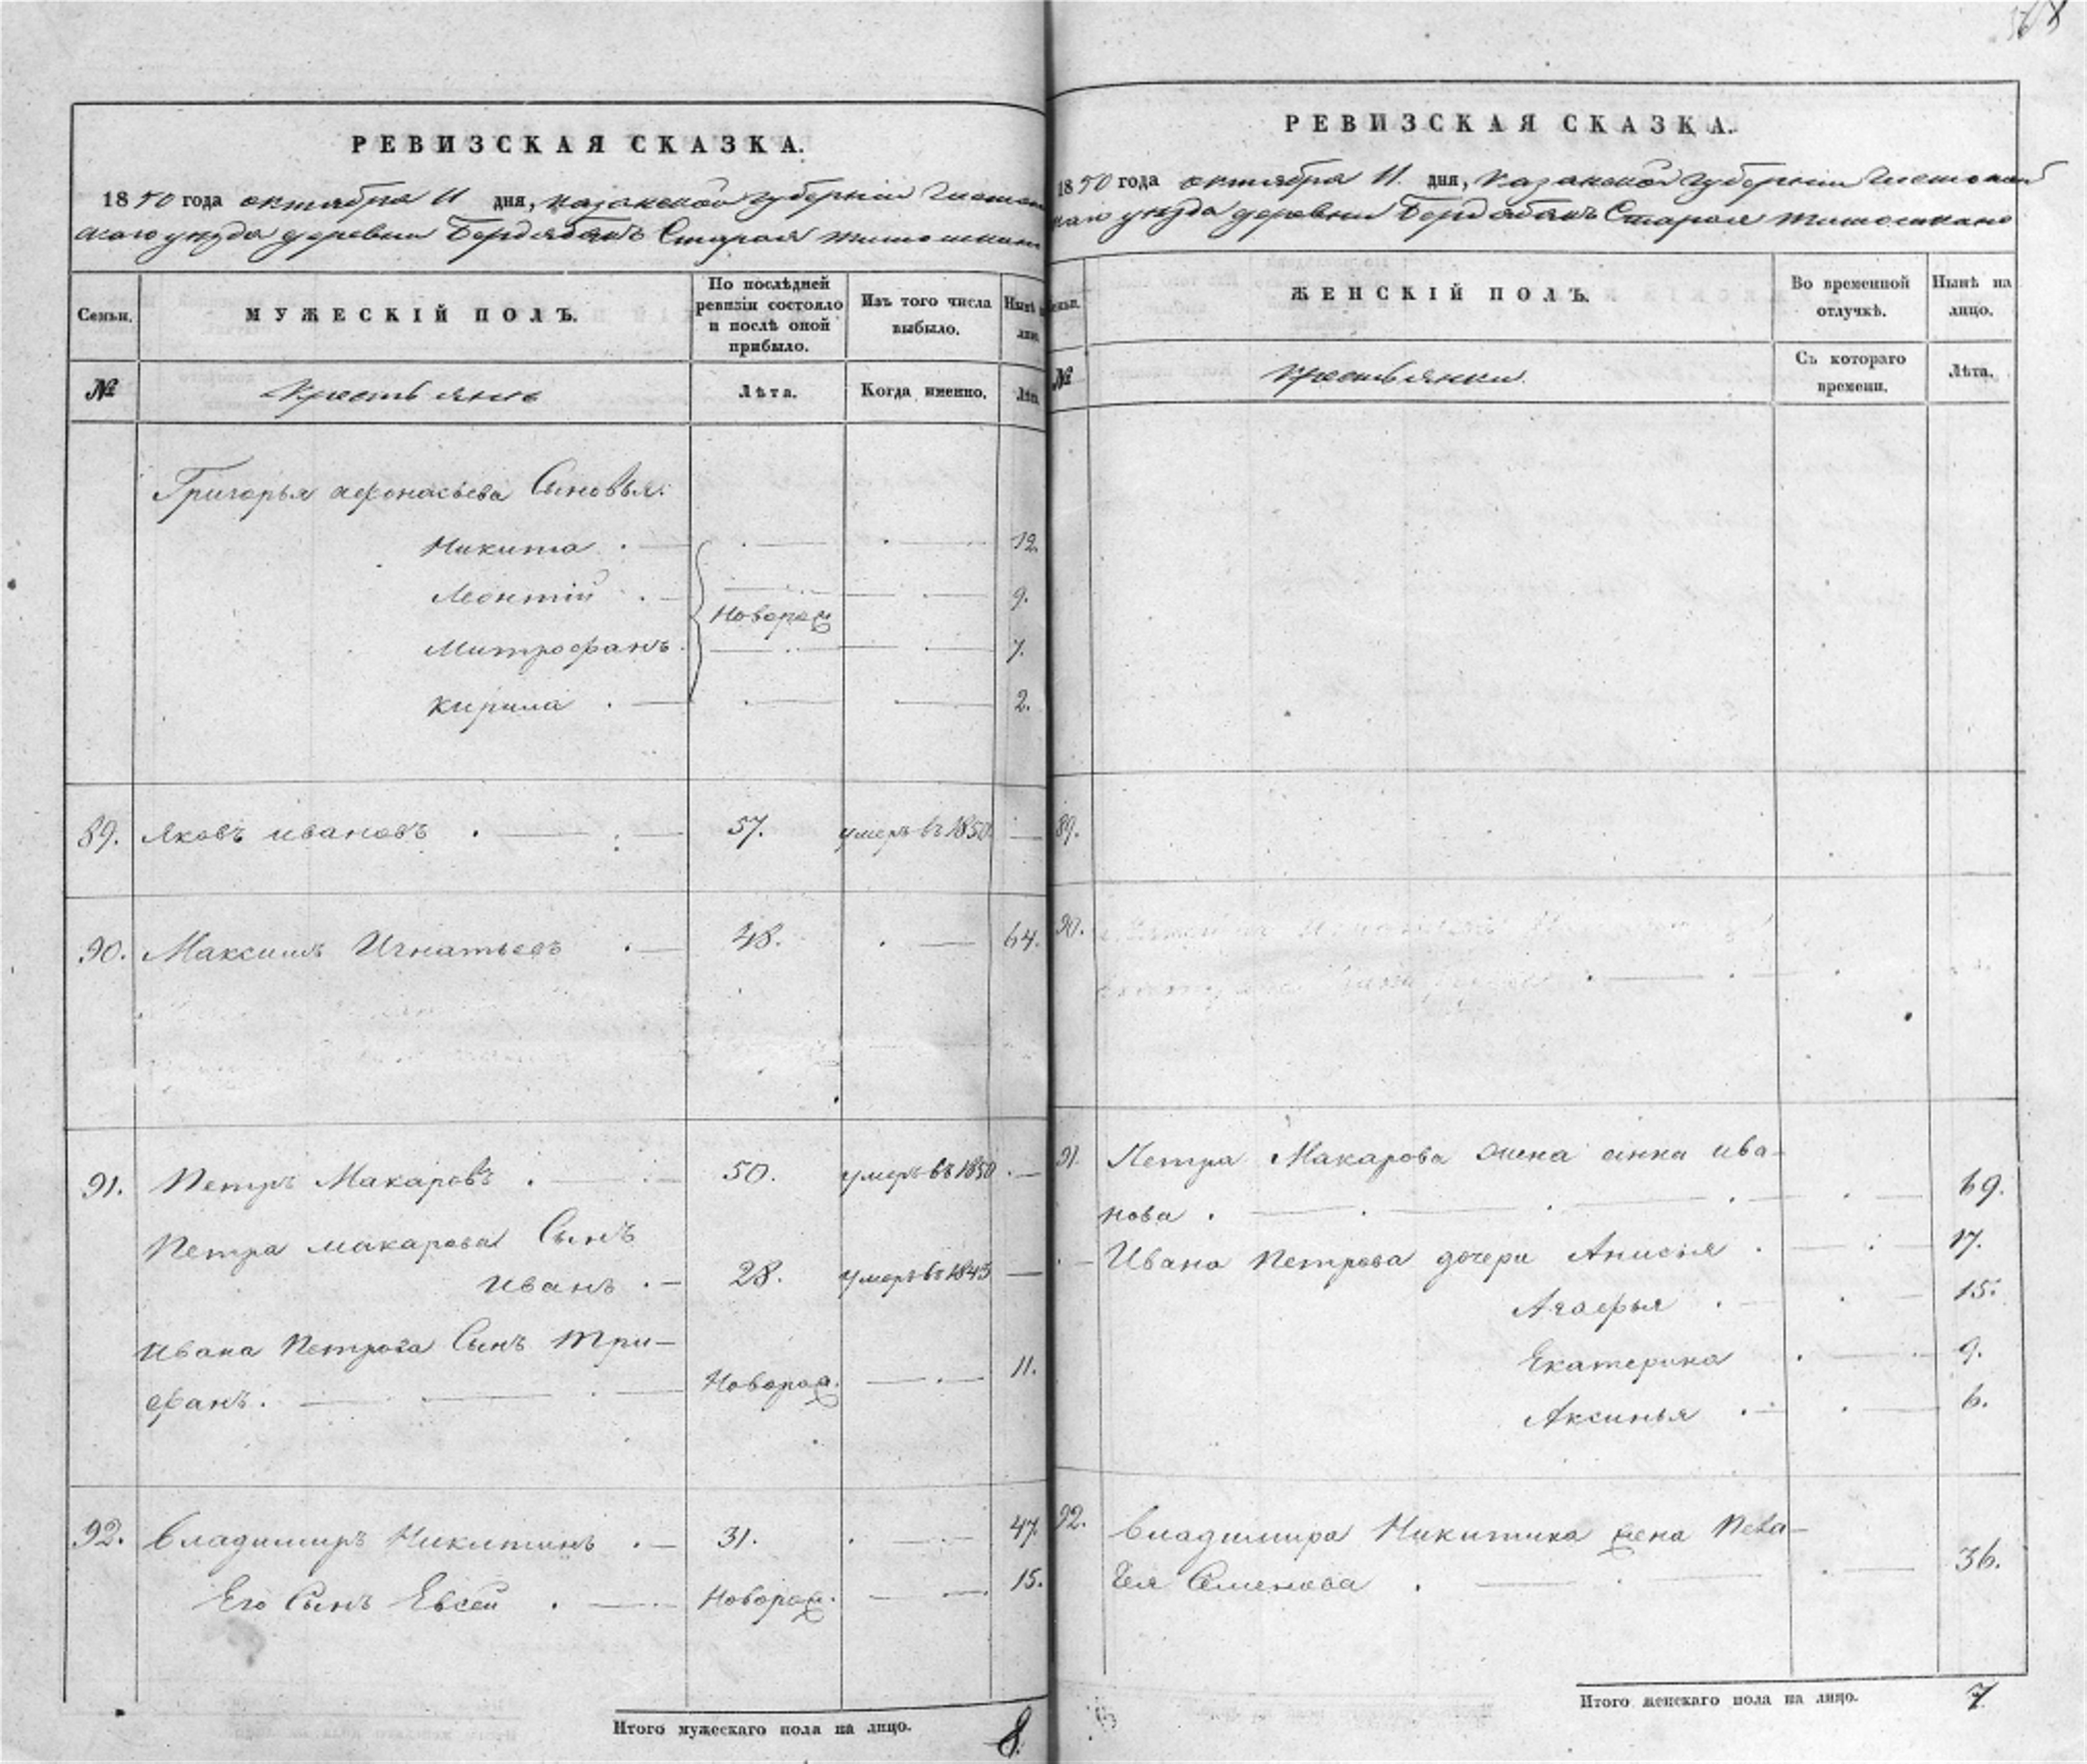 РЕВИЗСКАЯ СКАЗКА.
1850 года октября 11 дня, Казанской губерніи
уезда деревни Старая
Семьи. МУЖЕСКІЙ ПОЛЪ. По послѣдней ревизіи состояло и послѣ оной прибыло. Изъ того числа выбыло. Нынѣ на лицо.
№ Крестьяне Лѣта. Когда именно. Лѣта
Григорья Афонасьева Сыновья:
Никита 12.
Леонтій 9.
Новорож
Митрофанъ 7.
Кирила 2.
89. Яковъ Ивановъ 57. умеръ въ 1850
90. Максимъ Игнатьевъ 48. 64.
91. Петръ Макаровъ 50. умеръ въ 1850
Петра Макарова Сынъ
Иванъ 28. умеръ въ 1845
Ивана Петрова Сынъ Три-
фанъ. Новорож. 11.
92. Владимиръ Никитинъ 31. 47.
Его Сынъ Евсей Новорож. 15.
Итого мужескаго пола на лицо. 8.
РЕВИЗСКАЯ СКАЗКА.
1850 года октября 11. дня, Казанской губерніи
уезда деревни Старая
Семьи. ЖЕНСКІЙ ПОЛЪ. Во временной отлучкѣ. Нынѣ на лицо.
№ Крестьянки. Съ котораго времени. Лѣта.
89.
90.
91. Петра Макарова жена Анна Ива-
нова 69.
Ивана Петрова дочери Анисья 17.
Агафья 15.
Екатерина 9.
Аксинья 6.
92. Владимира Никитина жена Пела-
гея Семенова 36.
Итого женскаго пола на лицо. 7